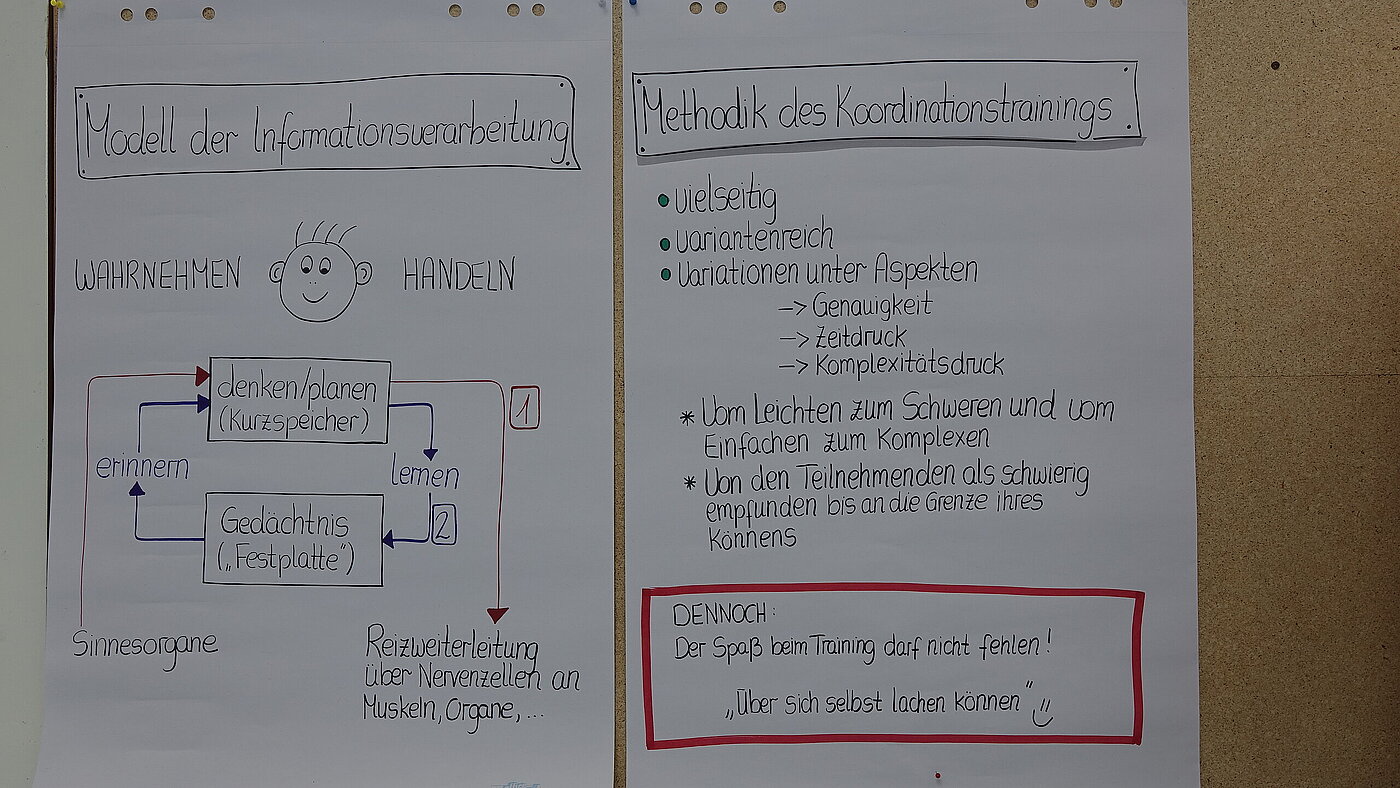 Modell der Informationsverarbeitung
WAHRNEHMEN HANDELN
denken/planen
(Kurzspeicher)
1
erinnern
lernen
Gedächtnis
(„Festplatte“)
2
Sinnesorgane
Reizweiterleitung
über Nervenzellen an
Muskeln, Organe, ...
Methodik des Koordinationstrainings
• vielseitig
• variantenreich
• Variationen unter Aspekten
--> Genauigkeit
--> Zeitdruck
--> Komplexitätsdruck
* Vom Leichten zum Schweren und vom
Einfachen zum Komplexen
* Von den Teilnehmenden als schwierig
empfunden bis an die Grenze ihres
Könnens
DENNOCH:
Der Spaß beim Training darf nicht fehlen!
„Über sich selbst lachen können“